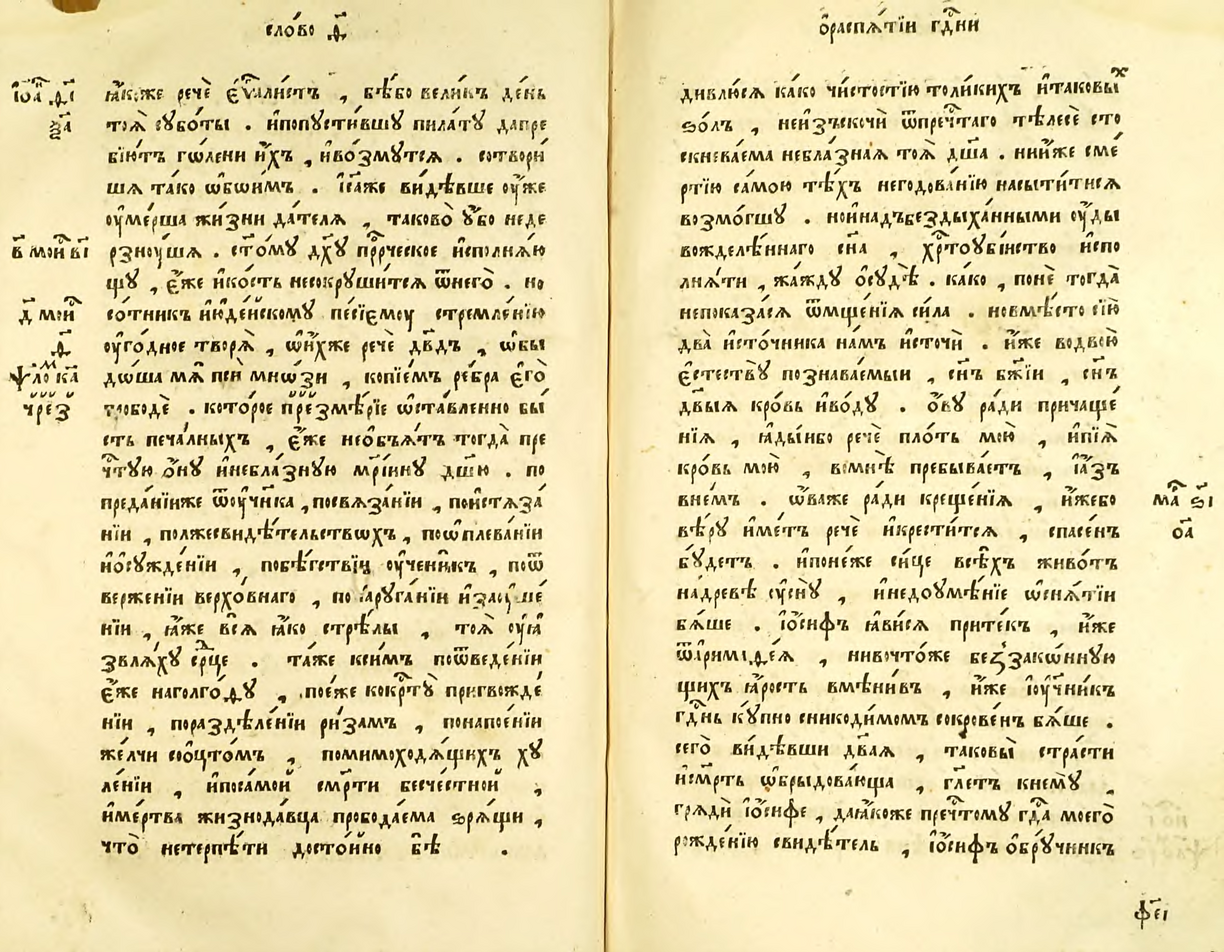 сло́во д҃
ꙗ҆́коже речѐ є҆ѵⷢ҇али́стъ , бѣ́бо вели́къ де́нь
тоѧ̀ сꙋбѡ́ты . и҆попꙋсти́вшꙋ пила́тꙋ дапре
бїю́тъ го́лени и҆́хъ , и҆во́змꙋтсѧ . сотвори́
шѧ та́ко ѡ҆бѡи́мъ . і҆с҃аже ви́дѣвше оу҆́же
оу҆ме́рша жи́зни да́телѧ , таково̀ ᲂу҆́бо неде
рзнꙋ́шѧ . ст҃о́мꙋ дх҃ꙋ прⷪ҇ро́ческое и҆сполнѧ́ю
щꙋ , є҆́же и҆ко́сть несокрꙋши́тсѧ ѿнего̀ . но
со́тникъ і҆ꙋде́йскомꙋ пе́сїємꙋ стремле́нїю
оу҆го́дное творѧ̀ , ѡ҆ни́хже речѐ дв҃дъ , ѡ҆бы
до́ша мѧ̀ псѝ мно́зи , копїе́мъ ре́бра є҆го̀
прободѐ . кото́рое презмѣ́рїе ѡ҆ста́вленно бы́
сть печа́лныхъ , є҆́же неѡ҆б̾ѧ́тъ тогда̀ пре
чⷭ҇тꙋю ѻ҆́нꙋ и҆небла́знꙋю мр҃і́инꙋ дш҃ꙋ . по
преда́нїиже ѿᲂу҆чн҃ика̀ , посвѧза́нїи , поистѧза́
нїи , полжесвидѣ́тельствѡхъ , поѡ҆плева́нїи
и҆ѡ҆сꙋжде́нїи , побѣ́гствїи оу҆чени́къ , поѿ
верже́нїи верхо́внаго , порꙋга́нїи и҆заꙋше́
нїи , ꙗ҆́же всѧ̀ ꙗ҆́ко стрѣ́лы , тоѧ̀ оу҆ꙗ
звлѧ́хꙋ срⷣце . та́же кси́мъ поѿведе́нїи
є҆́же наголго́ѳꙋ , пое́же кокрⷭ҇тꙋ̀ пригвожде́
нїи , пораздѣле́нїи ри́замъ , понапое́нїи
же́лчи соо́цтомъ , помимоходѧ́щихъ хꙋ
ле́нїи , и҆поса́мой сме́рти безче́стной ,
и҆ме́ртва жизнода́вца прободае́ма зрѧ́щи ,
что̀ нетерпѣ́ти досто́йно бѣ̀ .
ѡ҆распѧ́тїи гдⷭ҇ни
дивлю́сѧ ка́ко чи́стостїю толи́кихъ и҆таковы́хъ
ѕо́лъ , неи҆зъскочѝ ѿпречⷭ҇таго тѣ́лесѐ сто
скнева́ема небла́знаѧ тоѧ̀ дш҃а . нини́же сме́
ртїю само́ю тѣ́хъ негодова́нїю насы́титисѧ
возмо́гшꙋ . нои҆надъбездыха́нными оу҆́ды
вожделѣ́ннаго сн҃а , хрⷭ҇тоꙋбі́нство и҆спо
лнѧ́ти , жа́ждꙋ ѻ҆сꙋдѣ̀ . ка́ко , понѐ тогда̀
непоказа́сѧ ѿмще́нїѧ си́ла . новмѣ́сто сїю̀
два̀ и҆сто́чника на́мъ и҆сточѝ . и҆́же водвою̀
є҆стествꙋ̀ познава́емыи , сн҃ъ бж҃їи , сн҃ъ
дв҃ыѧ кро́вь и҆во́дꙋ . ѻ҆́вꙋ ра́ди причаще́
нїѧ , ꙗ҆ды́ибо речѐ пло́ть мою̀ , и҆пїѧ̀
кро́вь мою̀ , вомнѣ̀ пребыва́етъ , і҆а҆́зъ
вне́мъ . ѡ҆́важе ра́ди креще́нїѧ , и҆́жебо
вѣ́рꙋ и҆́метъ речѐ и҆крести́тсѧ , спасе́нъ
бꙋ́детъ . и҆поне́же си́це всѣ́хъ живо́тъ
надре́вѣ ᲂу҆снꙋ̀ , и҆недоꙋмѣ́нїе ѡ҆снѧ́тїи
бѧ́ше . і҆ѡ҆́сифъ ꙗ҆ви́сѧ прите́къ , и҆́же
ѿаримаѳе́ѧ , нивочто́же беззако́ннꙋю
щихъ ꙗ҆́рость вмѣни́въ , и҆́же і҆ᲂу҆чн҃икъ
гдⷭ҇нь кꙋ́пно сникоди́момъ сокрове́нъ бѧ́ше .
сего̀ ви́дѣвши дв҃аѧ , таковы̀ стра́сти
и҆сме́рть ѡ҆брыдова́юща , гл҃етъ кнемꙋ̀ ,
грѧдѝ і҆ѡ҆́сифе , даꙗ҆́коже пречⷭ҇томꙋ гдⷭ҇а моего̀
рожде́нїю свидѣ́тель , і҆ѡ҆́сифъ ѻ҆брꙋ́чникъ
і҆ѡа҃ ѳ҃і
ѯ҃а
в҃ мои҆ в҃і
д҃ мои҆
ѱало́мъ к҃а
ма҃ ѕ҃і
ѻ҃а
ф҃еі